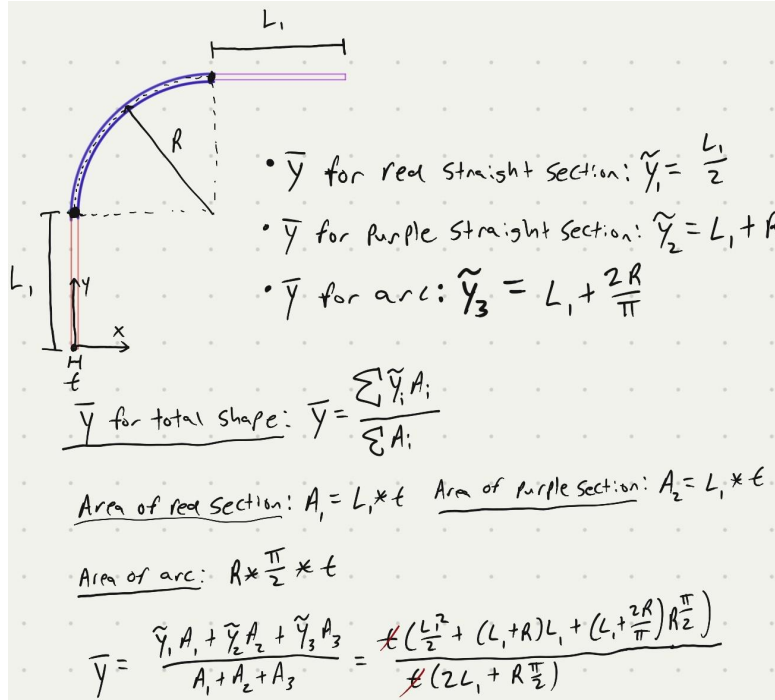 L₁
R
• ȳ for red straight section: ỹ₁ = L₁/2
• ȳ for purple straight section: ỹ₂ = L₁ + R
• ȳ for arc: ỹ₃ = L₁ + 2R/π
L₁
y
x
t
ȳ for total shape: ȳ = ∑ỹᵢAᵢ / ∑Aᵢ
Area of red section: A₁ = L₁ * t Area of purple section: A₂ = L₁ * t
Area of arc: R * π/2 * t
ȳ = (ỹ₁A₁ + ỹ₂A₂ + ỹ₃A₃) / (A₁ + A₂ + A₃) = t(L₁²/2 + (L₁+R)L₁ + (L₁ + 2R/π)R π/2) / t(2L₁ + R π/2)